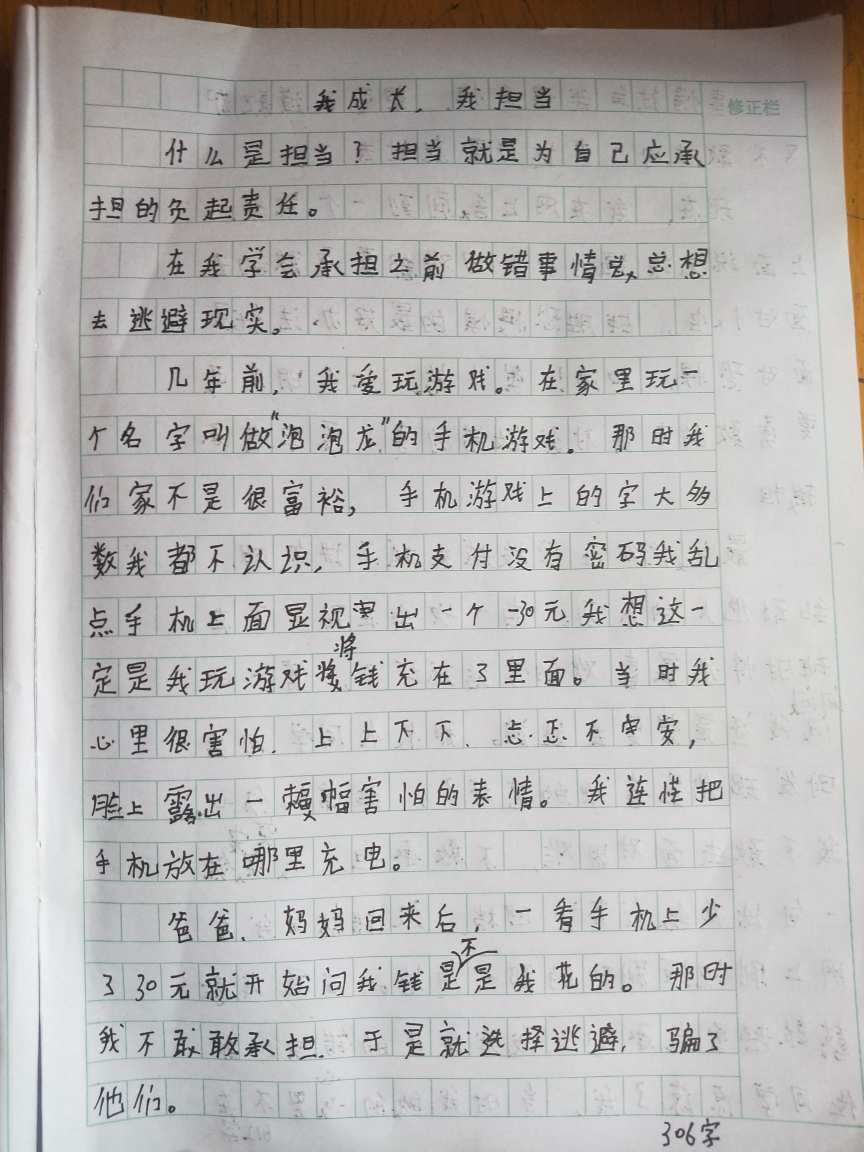 我成长，我担当
修正栏
什么是担当？担当就是为自己应承
担的负起责任。
在我学会承担之前做错事情总想
去逃避现实。
几年前，我爱玩游戏。在家里玩一
个名字叫做“泡泡龙”的手机游戏。那时我
们家不是很富裕，手机游戏上的字大多
数我都不认识，手机支付没有密码我乱
点手机上面显视出一个-30元我想这一
定是我玩游戏将钱充在了里面。当时我
心里很害怕、上上下下、忐忑不安，
脸上露出一幅害怕的表情。我连忙把
手机放在哪里充电。
爸爸、妈妈回来后，一看手机上少
了30元就开始问我钱是不是我花的。那时
我不敢敢承担、于是就选择逃避，骗了
他们。
306字